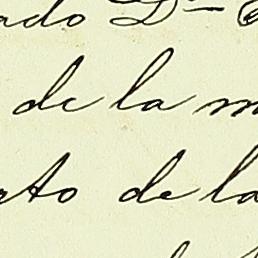 ado Dn
de la m
to de la